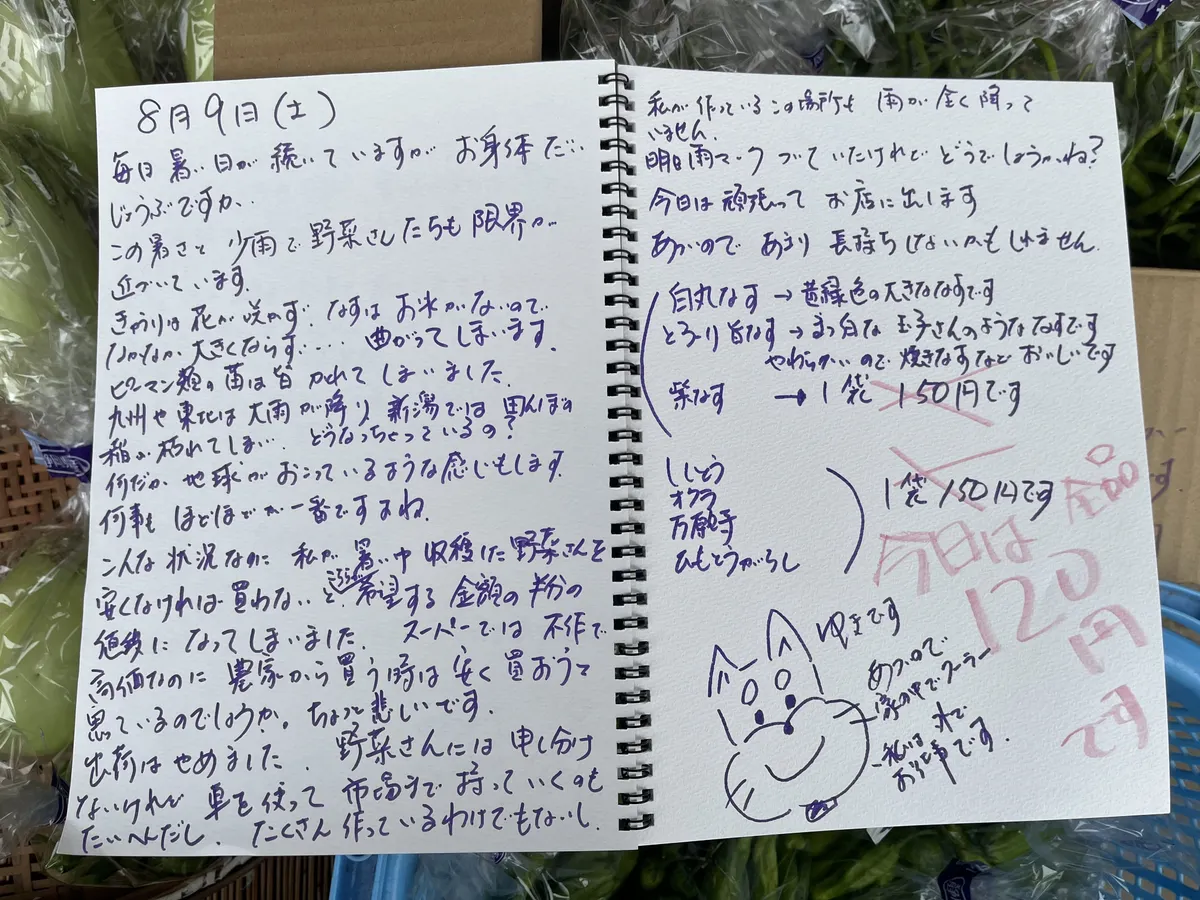 8月9日(土)
毎日暑い日が続いていますが お身体だい
じょうぶですか、
この暑さと 少雨で野菜さんたちも限界が
近づいています。
きゅうりは花が咲かず、なすはお水がないので
なかなか大きくならず..... 曲がってしまいます。
ピーマン類の苗は皆かれてしまいました。
九州や東北は大雨が降り 新潟では田んぼの
稲が枯れてしまい... どうなっちゃっているの?
何だか地球がおこっているような感じもします。
何事も ほどほどが一番ですよね。
こんな状況なのに 私が暑い中収穫した野菜さんを
安くなければ買わないと、こちらが希望する金額の半分の
値段になってしまいました。 スーパーでは不作で
高価なのに農家から買う時は安く買おうと
思っているのでしょうか。ちょっと悲しいです。
出荷はやめました。 野菜さんには申し分け
ないけれど 車を使って市場まで持っていくのも
たいへんだし、 たくさん作っているわけでもないし、
私が作っているこの場所も 雨が全く降って
いません。
明日雨マークついていたけれど どうでしょうかね?
今日は頑張って お店に出します
あついので あまり長持ちしないかもしれません。
白丸なす → 黄緑色の大きななすです
とろーり旨なす → まっ白な玉子さんのようななすです
やわらかいので 焼きなすなど おいしいです
紫なす → 1袋 150円です
ししとう
オクラ
万願寺
ひもとうがらし
1袋150円です
今日は 全品
120
円
です
ゆきです
あついので
家の中でクーラー
私は外で
お仕事です。